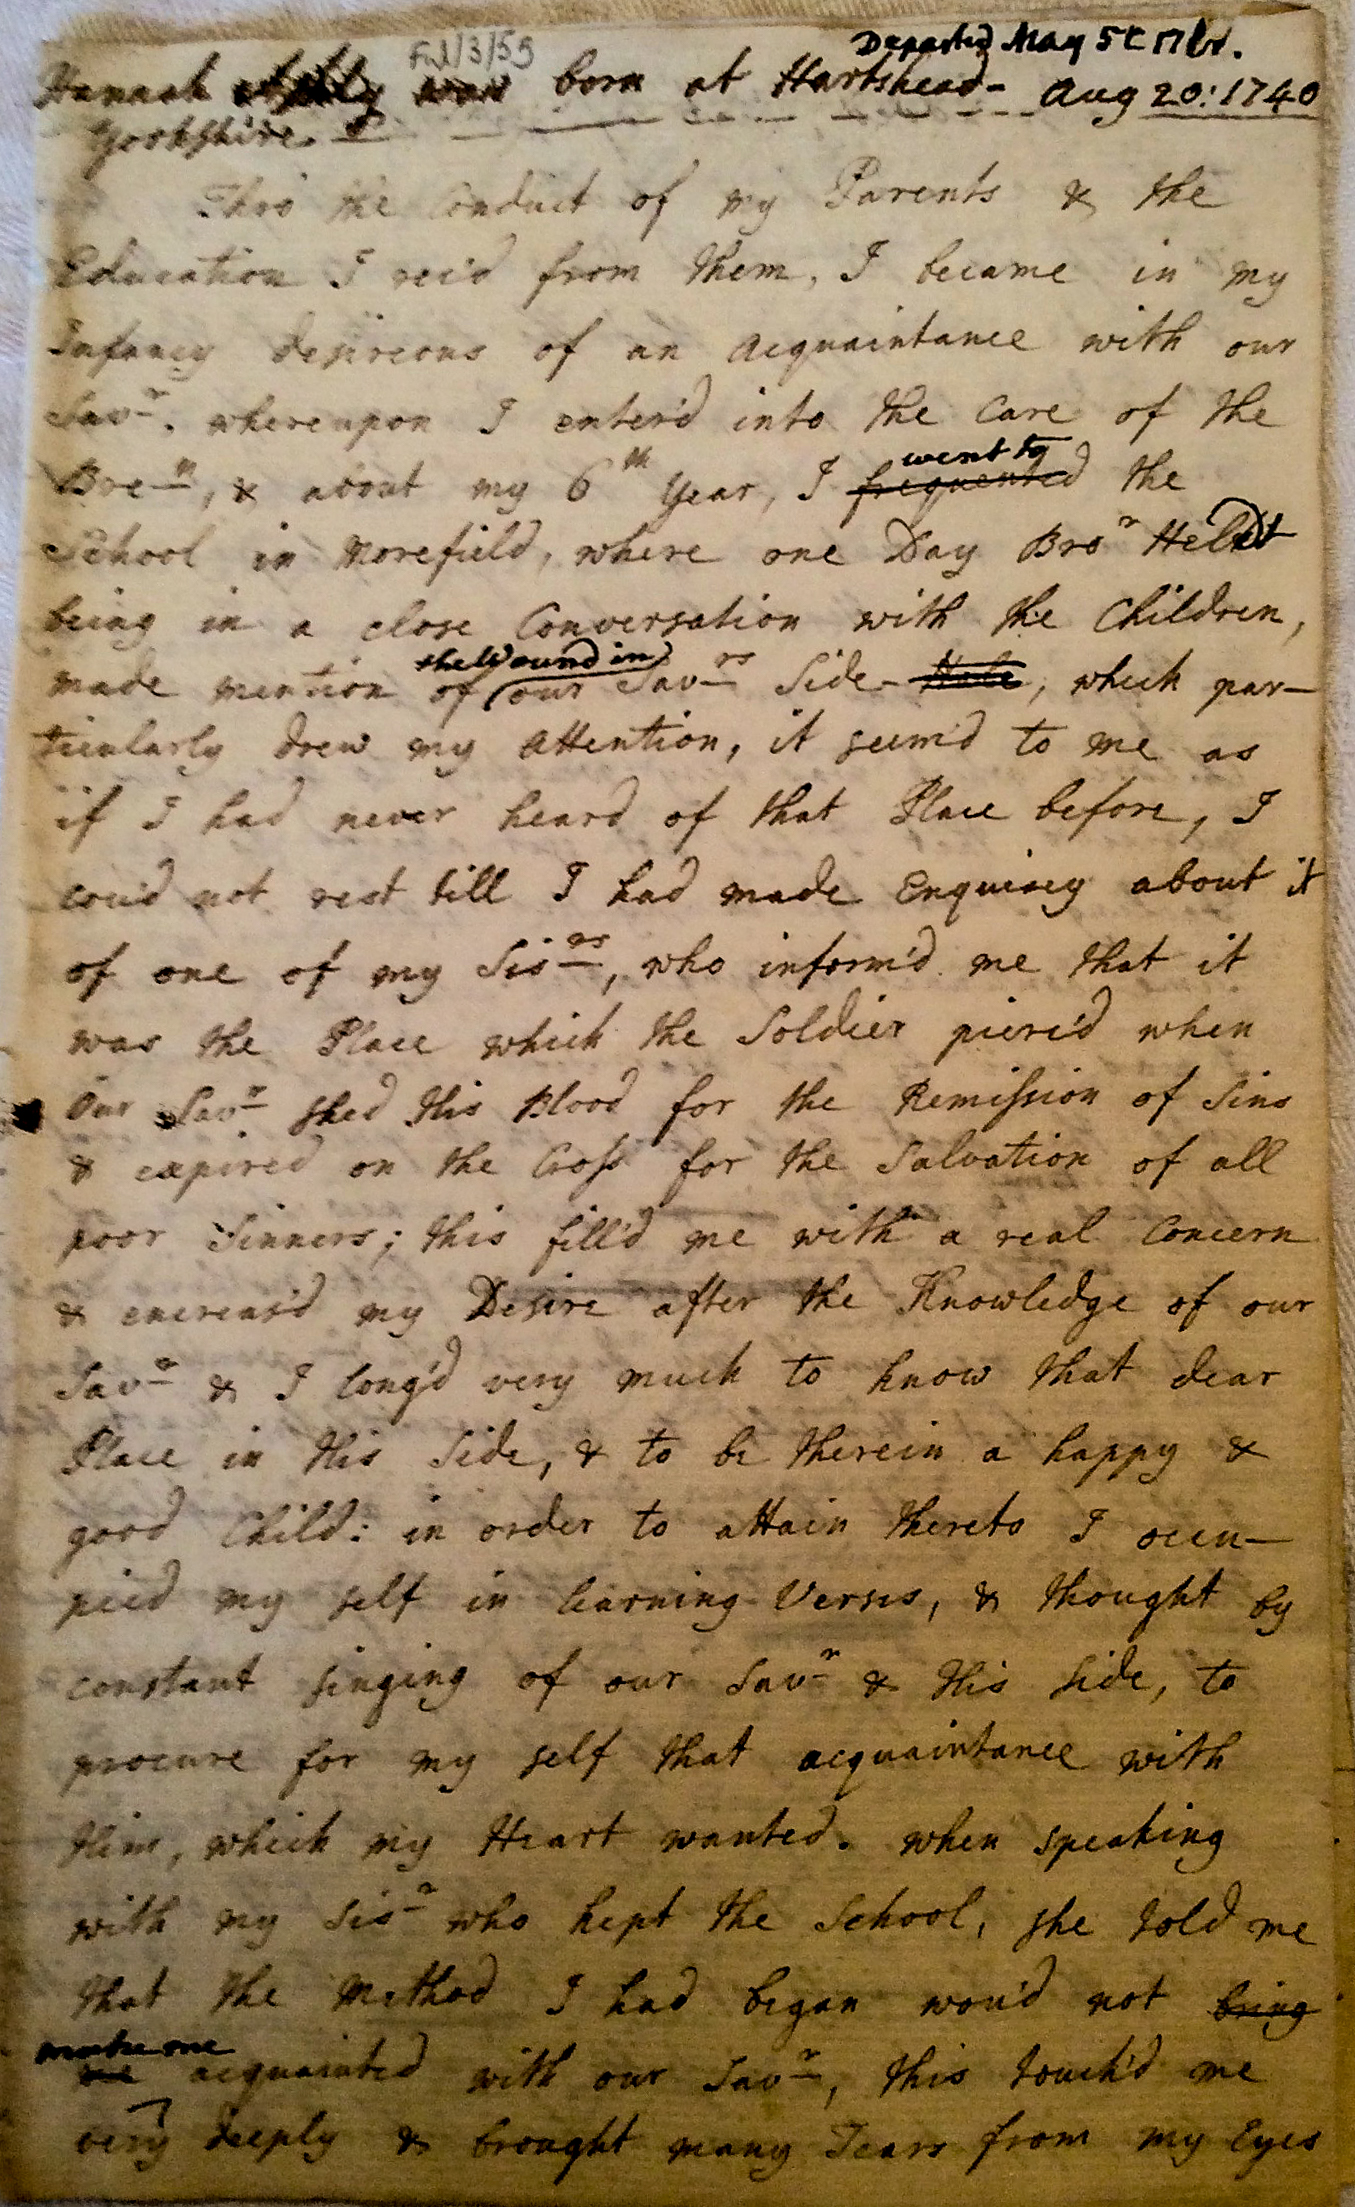 Ful/3/59
Departed May 5t
Hannah was born at Hartshead- Aug 20: 1740
Yorkshire.
Thro' the Conduct of my Parents & the
Education I rec'd from them, I became in my
Infancy desireous of an Acquaintance with our
Savr. whereupon I enter'd into the Care of the
Bren, & about my 6th Year, I frequented went to the
School in Morefield, where one Day Bror Held
being in a close Conversation with the Children,
made mention of the Wound in our Savrs Side-Hole, which par-
ticularly drew my Attention, it seem'd to me as
if I had never heard of that Place before, I
cou'd not rest till I had made Enquirey about it
of one of my Sisrs, who inform'd me that it
was the Place which the Soldier pierc'd when
Our Savr shed His Blood for the Remission of Sins
& expired on the Cross for the Salvation of all
poor Sinners; this fill'd me with a real Concern
& encreas'd my Desire after the Knowledge of our
Savr & I long'd very much to know that dear
Place in His Side, & to be therein a happy &
good Child: in order to attain thereto I occu-
pied my self in learning Verses, & thought by
constant singing of our Savr & His Side, to
procure for my self that acquaintance with
Him, which my Heart wanted. When speaking
with my Sisr who kept the School, she told me
that the Method I had began wou'd not bring
me make me acquainted with our Savr, this touch'd me
very deeply & brought many Tears from my Eyes